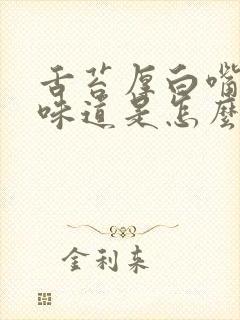 舌苔厚白嘴
味道是怎麽
金利来